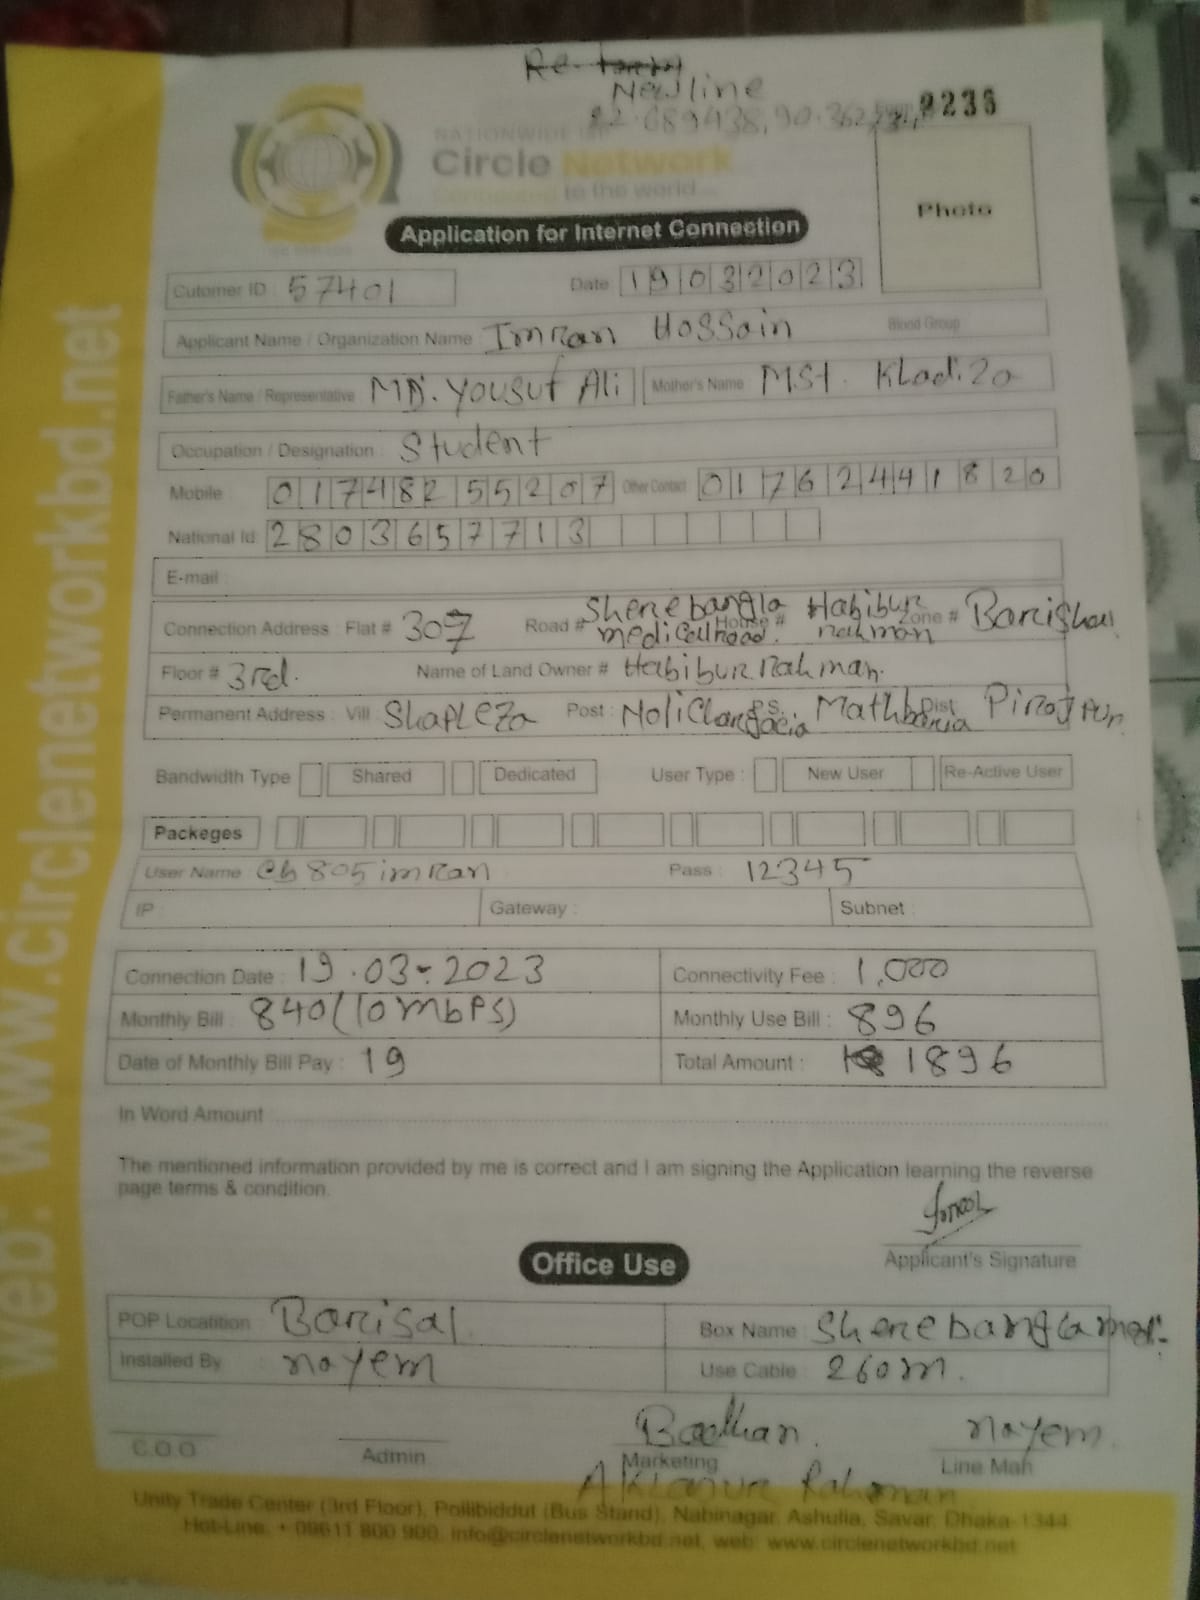 Newline
22.689438, 90.362
2236
NATIONWIDE ISP
Circle Network
Connected to the world...
Photo
Application for Internet Connection
Cutomer ID : 57401 Date : 19032023
Applicant Name / Organization Name : Imran Hossain Blood Group :
Father's Name / Representative MD. Yousuf Ali Mother's Name MSt.
Occupation / Designation : Student
Mobile : 01748255207 Other Contact 01762441820
National Id: 2803657713
E-mail :
Connection Address : Flat # 307 Road # Sherebangla medicalroad. House # Habibur rahman Zone # Barishal
Floor # 3rd. Name of Land Owner # Habibur Rahman.
Permanent Address : Vill : Post : P.S. Mathbaria Dist Pirojpur
Bandwidth Type Shared Dedicated User Type : New User Re-Active User
Packeges
User Name cb805imran Pass : 12345
IP : Gateway : Subnet :
Connection Date : 19.03.2023 Connectivity Fee : 1,000
Monthly Bill : 840 (10mbps) Monthly Use Bill : 896
Date of Monthly Bill Pay : 19 Total Amount : 1896
In Word Amount :
The mentioned information provided by me is correct and I am signing the Application learning the reverse
page terms & condition.
Applicant's Signature
Office Use
POP Locatition Barisal Box Name : Sherebangla
Installed By nayem Use Cable : 260m.
Badhan. nayem.
C.O.O Admin Marketing Line Man
Rahman
Unity Trade Center (3rd Floor), Pollibiddut (Bus Stand), Nabinagar, Ashulia, Savar, Dhaka-1344
Hot-Line: + 09611 800 900, info@circlenetworkbd.net, web: www.circlenetworkbd.net
web: www.circlenetworkbd.net